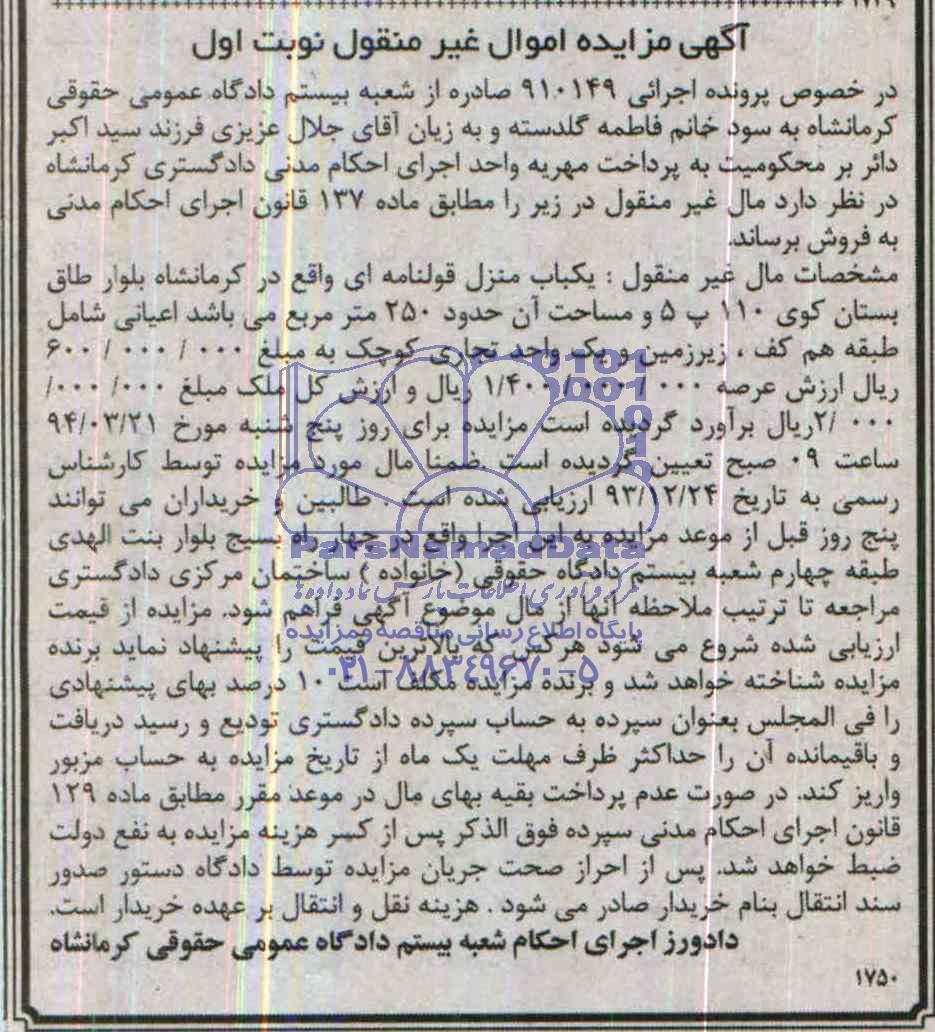 ۱۷۴۹
آگهی مزایده اموال غیر منقول نوبت اول
در خصوص پرونده اجرائی ۹۱۰۱۴۹ صادره از شعبه بیستم دادگاه عمومی حقوقی
کرمانشاه به سود خانم فاطمه گلدسته و به زیان آقای جلال عزیزی فرزند سید اکبر
دائر بر محکومیت به پرداخت مهریه واحد اجرای احکام مدنی دادگستری کرمانشاه
در نظر دارد مال غیر منقول در زیر را مطابق ماده ۱۳۷ قانون اجرای احکام مدنی
به فروش برساند.
مشخصات مال غیر منقول : یکباب منزل قولنامه ای واقع در کرمانشاه بلوار طاق
بستان کوی ۱۱۰ پ ۵ و مساحت آن حدود ۲۵۰ متر مربع می باشد اعیانی شامل
طبقه هم کف ، زیرزمین و یک واحد تجاری کوچک به مبلغ ۰۰۰ / ۰۰۰ / ۶۰۰
ریال ارزش عرصه ۰۰۰ /۰۰۰/ ۱/۴۰۰ ریال و ارزش کل ملک مبلغ ۰۰۰/ ۰۰۰/
۰۰۰ /۲ریال برآورد گردیده است مزایده برای روز پنج شنبه مورخ ۹۴/۰۳/۲۱
ساعت ۰۹ صبح تعیین گردیده است .ضمنا مال مورد مزایده توسط کارشناس
رسمی به تاریخ ۹۳/۱۲/۲۴ ارزیابی شده است . طالبین و خریداران می توانند
پنج روز قبل از موعد مزایده به این اجرا واقع در چهار راه بسیج بلوار بنت الهدی
طبقه چهارم شعبه بیستم دادگاه حقوقی (خانواده ) ساختمان مرکزی دادگستری
مراجعه تا ترتیب ملاحظه آنها از مال موضوع آگهی فراهم شود. مزایده از قیمت
ارزیابی شده شروع می شود هرکس که بالاترین قیمت را پیشنهاد نماید برنده
مزایده شناخته خواهد شد و برنده مزایده مکلف است ۱۰ درصد بهای پیشنهادی
را فی المجلس بعنوان سپرده به حساب سپرده دادگستری تودیع و رسید دریافت
و باقیمانده آن را حداکثر ظرف مهلت یک ماه از تاریخ مزایده به حساب مزبور
واریز کند. در صورت عدم پرداخت بقیه بهای مال در موعد مقرر مطابق ماده ۱۲۹
قانون اجرای احکام مدنی سپرده فوق الذکر پس از کسر هزینه مزایده به نفع دولت
ضبط خواهد شد. پس از احراز صحت جریان مزایده توسط دادگاه دستور صدور
سند انتقال بنام خریدار صادر می شود . هزینه نقل و انتقال بر عهده خریدار است.
دادورز اجرای احکام شعبه بیستم دادگاه عمومی حقوقی کرمانشاه
۱۷۵۰
ParsNamadData
مرکز فرآوری اطلاعات پارس نماد داده ها
پایگاه اطلاع رسانی مناقصه و مزایده
۰۲۱-۸۸۳۴۹۶۷۰-۵